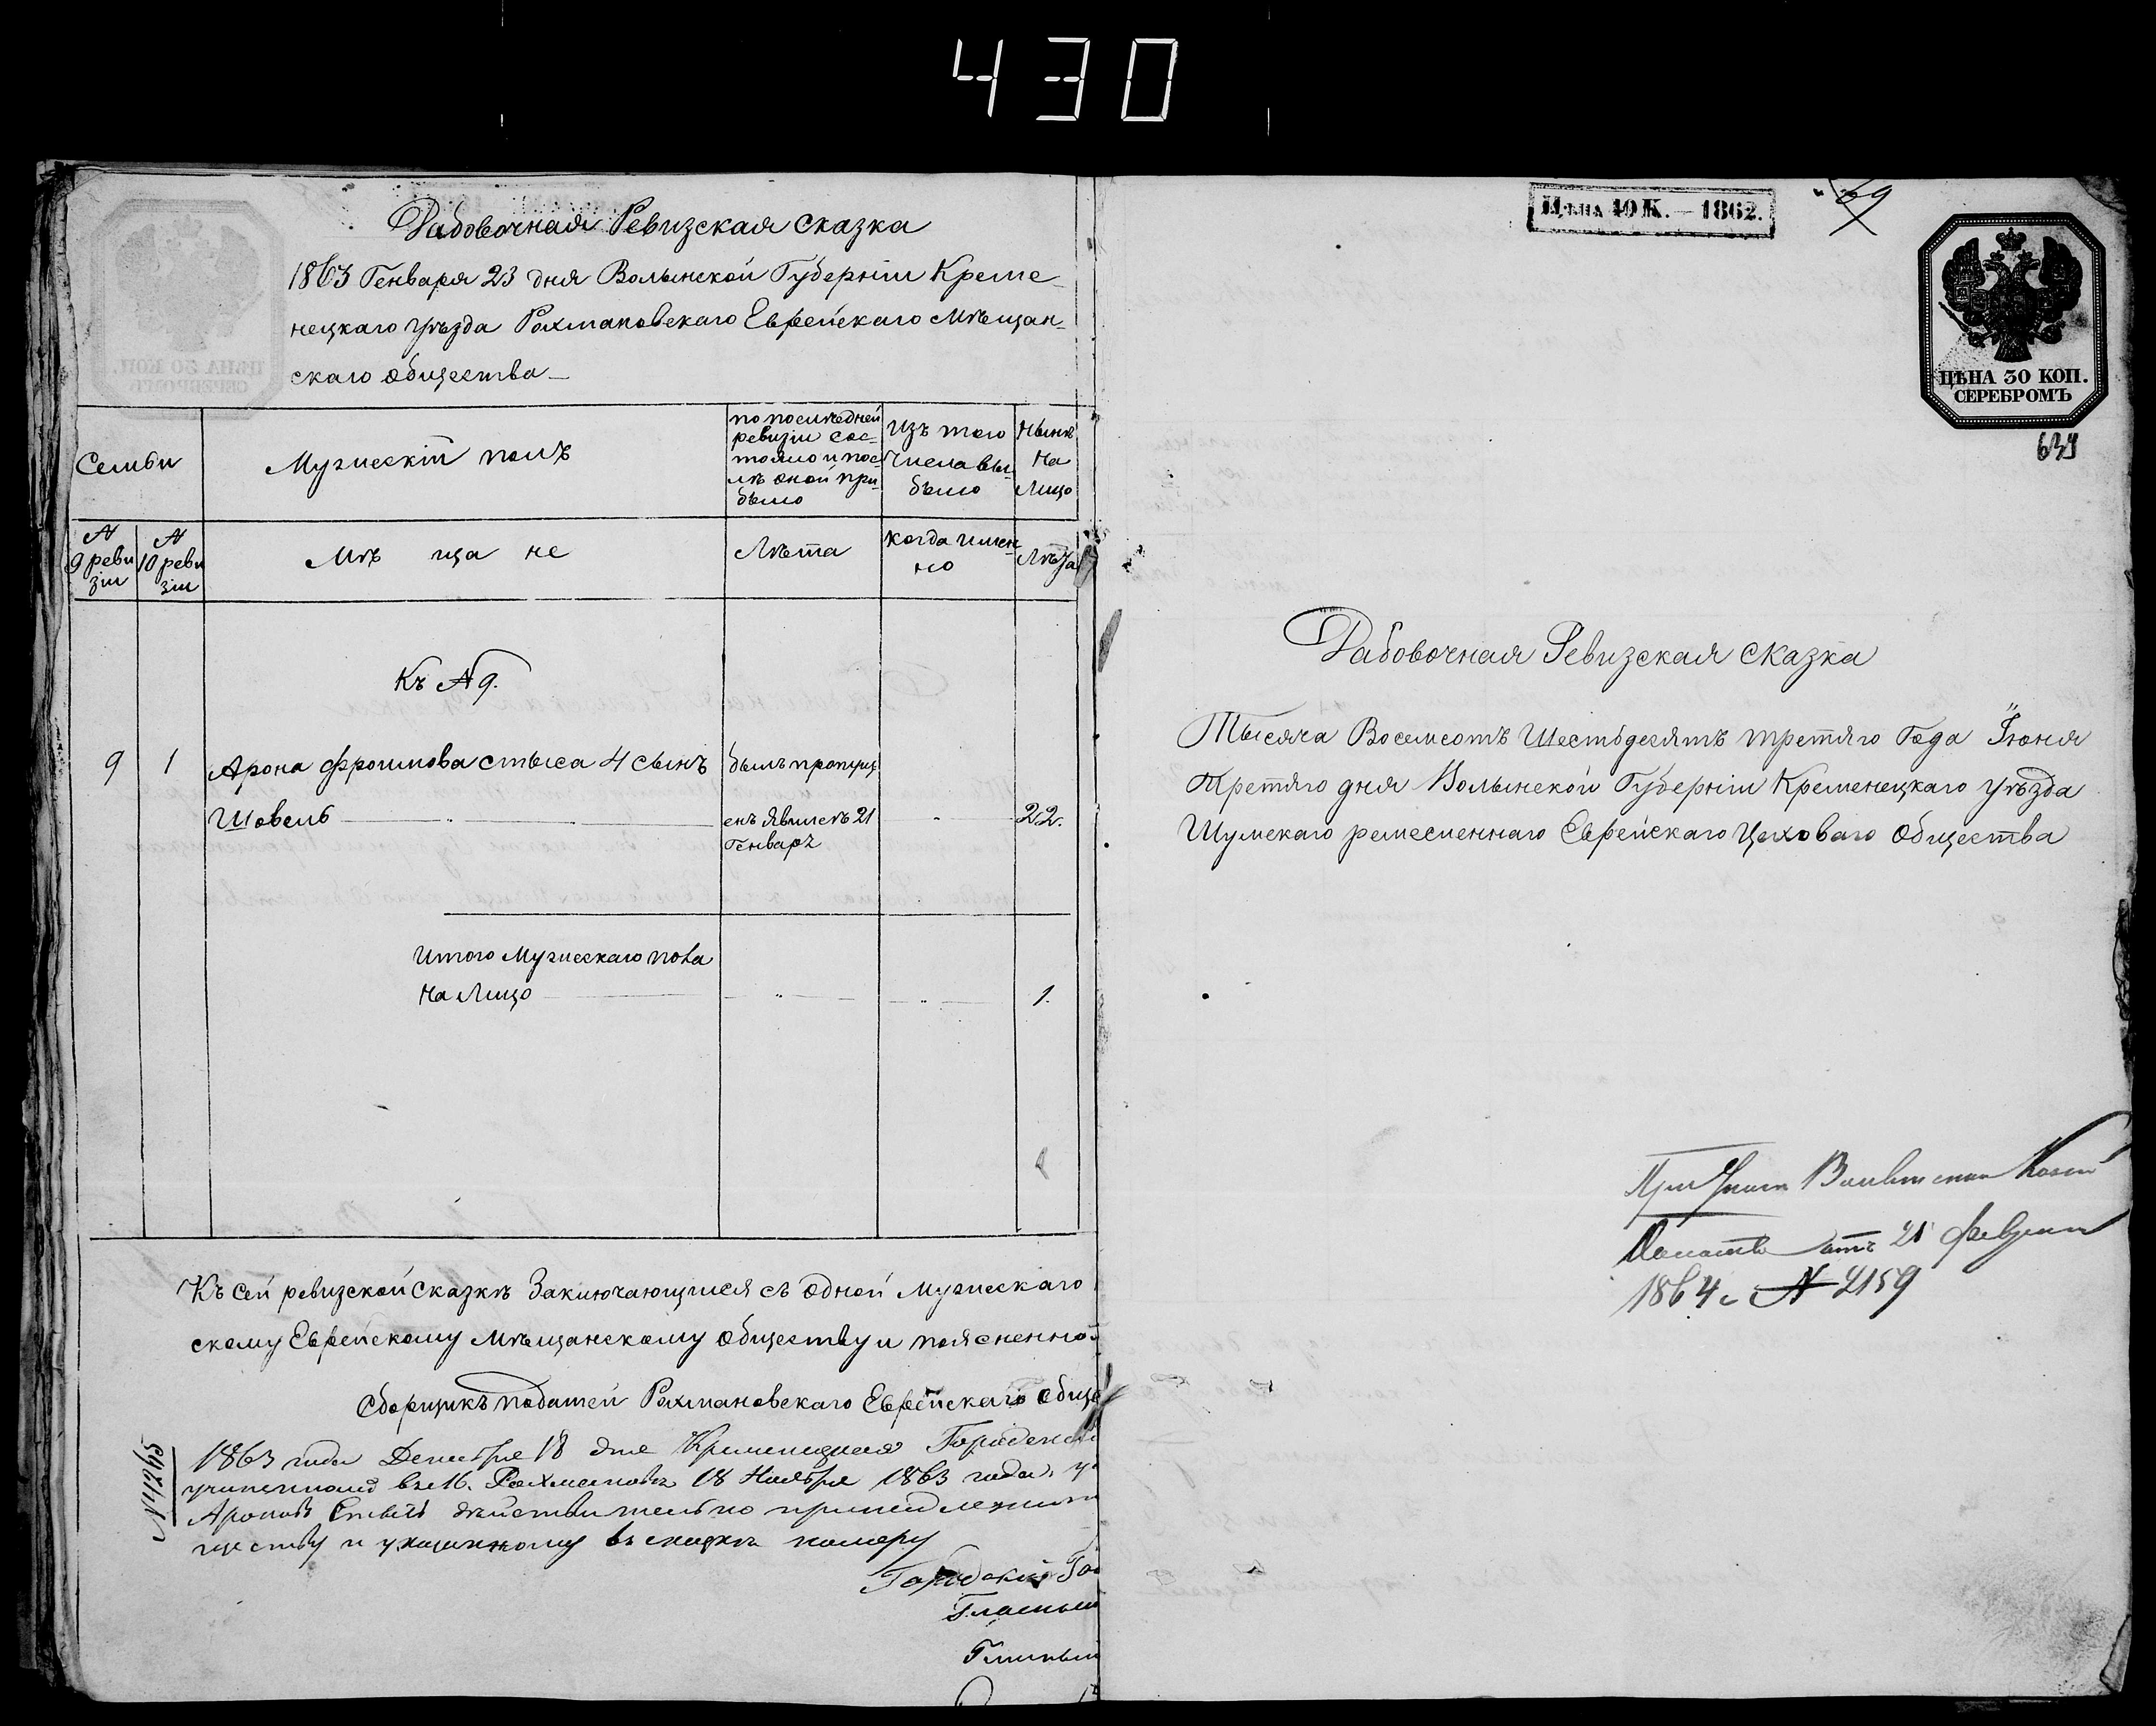 430
Дабовочная Ревизская сказка
1863 Генваря 23 дня Волынской Губерніи Креме-
нецкаго уѣзда Рахмановскаго Еврейскаго Мѣщан-
скаго общества
Семьи
Мужескій полъ
по послѣдней
ревизіи сос-
тояло и пос-
лѣ оной при-
было
Изъ того
числа вы-
было
Нынѣ
на
Лицо
№
9 реви
зіи
№
10 реви
зіи
Мѣщане
Лѣта
когда имен
но
Лѣта
Къ № 9.
9 1 Арона Фроимова Стыса 4 сынъ былъ пропущ
Шовель енъ явился 21 22.
Генваря
Итого Мужескаго пола
на Лицо 1.
Къ сей ревизской сказкѣ Заключающейся съ одной Мужескаго
скому Еврейскому Мѣщанскому обществу и пояснено
Сборщикъ податей Рахмановскаго Еврейскаго обще
№ 4265
1863 года Декабря 18 дня Кременецкая Городская
учиненной в м. Рахмановкѣ 18 Ноября 1863 года,
Ароновъ Стысъ дѣйствительно принадлежитъ
ществу и указанному въ сказкѣ номеру
Городской Го
Гласный
Гласный
ЦѢНА 30 КОП.
СЕРЕБРОМЪ
Цѣна 40 К. — 1862.
69
ЦѢНА 30 КОП.
СЕРЕБРОМЪ
639
Дабовочная Ревизская сказка
Тысяча Восемсотъ Шестьдесятъ третяго Года Іюня
третяго дня Волынской Губерніи Кременецкаго уѣзда
Шумскаго ремесленнаго Еврейскаго Цеховаго общества
При Указѣ Волынской Казен
Палаты отъ 21 февраля
1864 г. № 2159